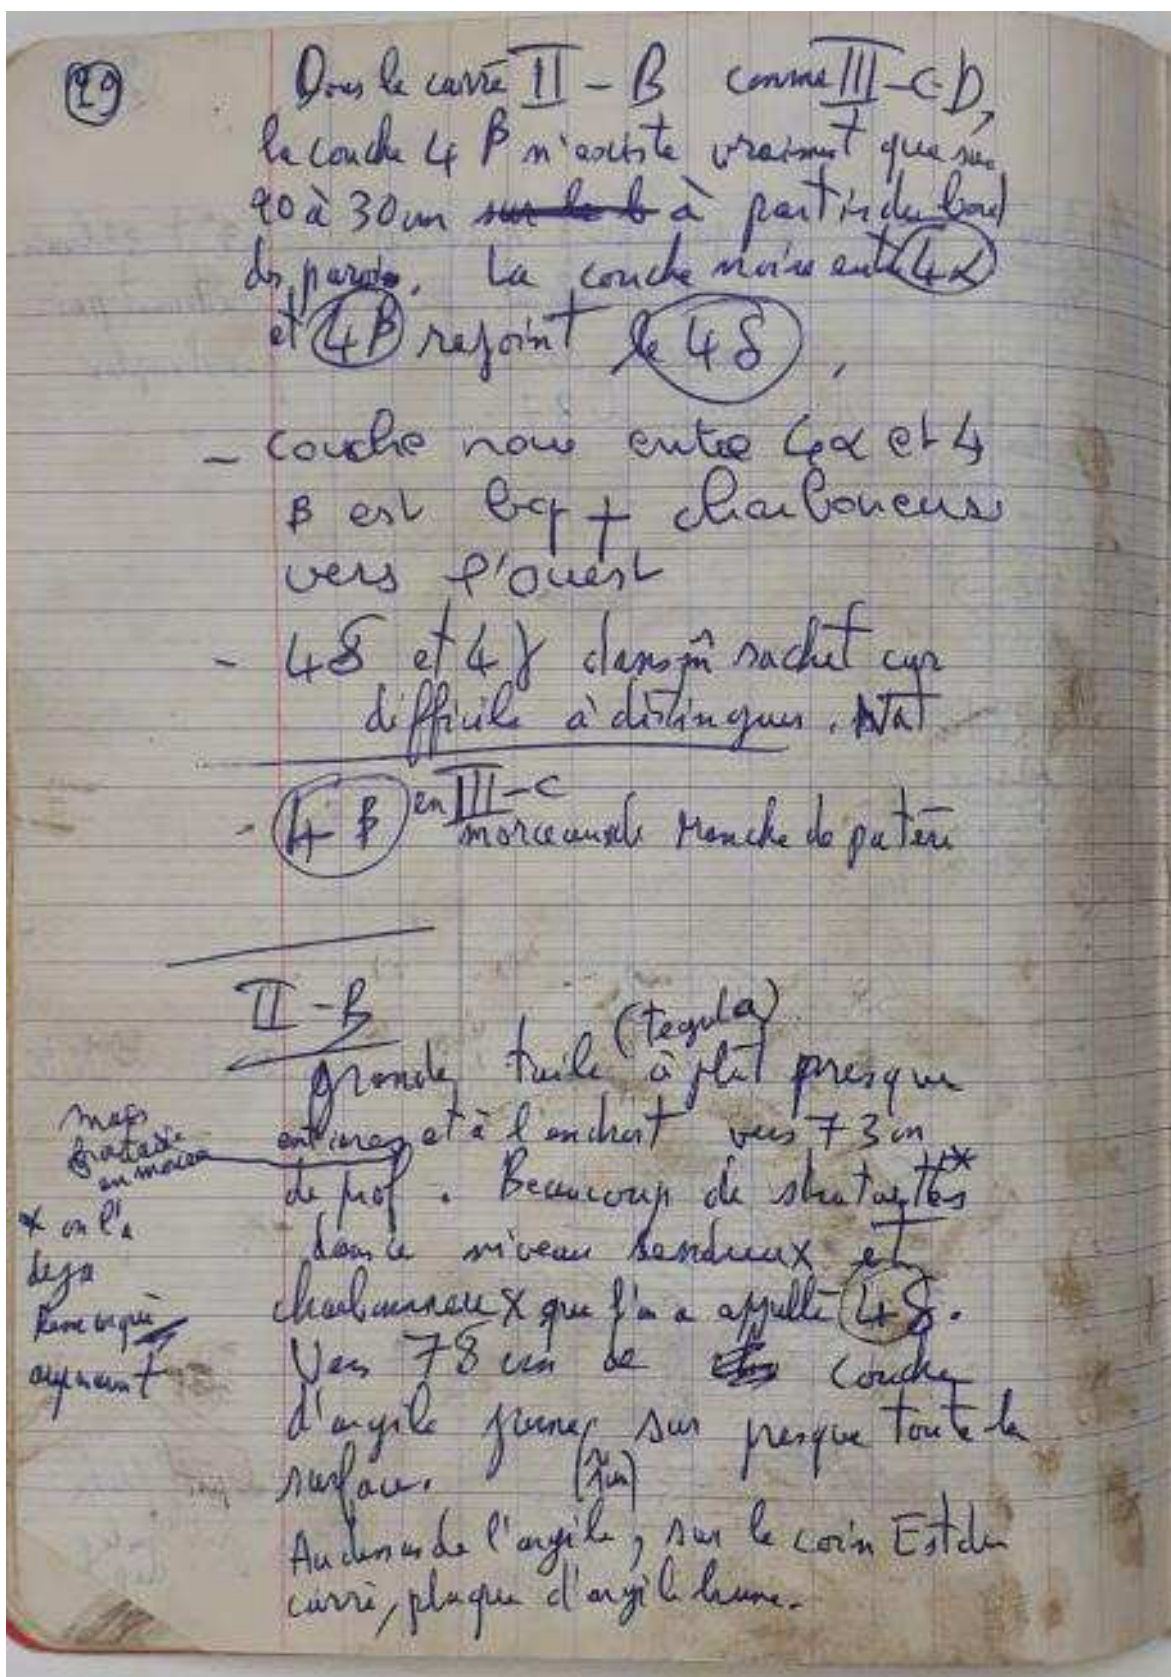 29
Dans le carré II - B comme III - C-D,
la couche 4 β n'existe vraiment que sur
20 à 30 cm sur le b à partir du bord
des parois. La couche noire entre 4α
et 4β rejoint le 4δ,
- couche noire entre 4α et 4
β est bcp + charboneuse
vers l'ouest
- 4δ et 4γ dans m̂ sachet car
difficile à distinguer. Nat
- 4 β en III - C
morceau de manche de patère
II - B
(tegula)
grande tuile à plat presque
entière et à l'endroit vers 73 cm
mais
fracturée
en morceaux
de prof. Beaucoup de
* on l'a
déjà
remarqué
dans le niveau cendreux et
charbonneux que l'on a appellé 4δ.
Vers 78 cm de couche
d'argile jaune, sur presque toute la
surface.
Au dessus de l'argile, sur le coin Est du
carré, plaque d'argile brune.